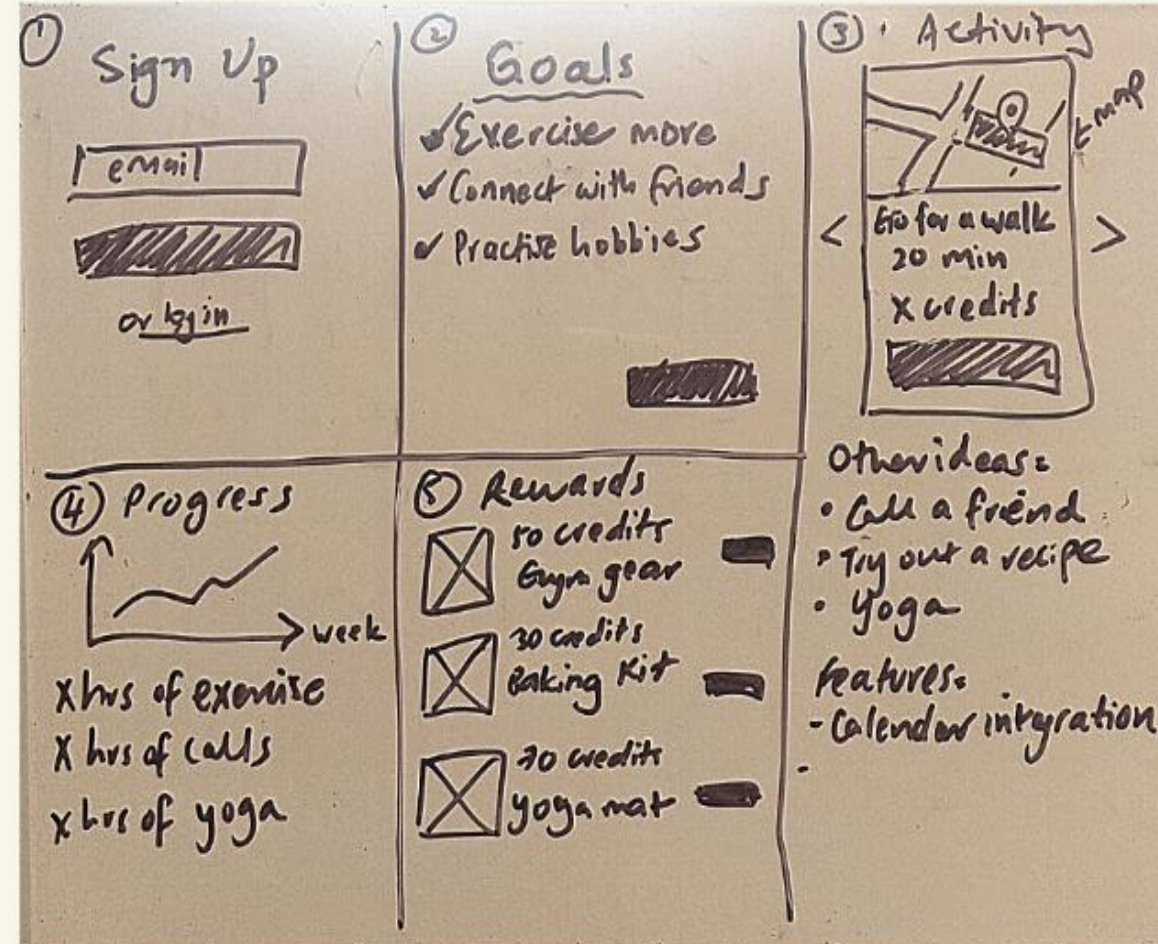 ① Sign Up
email
or log in
② Goals
Exercise more
Connect with friends
Practise hobbies
③ Activity
map
Go for a walk
20 min
X credits
Other ideas:
• Call a friend
• Try out a recipe
• Yoga
Features:
- Calendar integration
-
④ Progress
week
X hrs of exercise
X hrs of calls
X hrs of yoga
⑤ Rewards
50 credits
Gym gear
30 credits
Baking Kit
70 credits
yoga mat